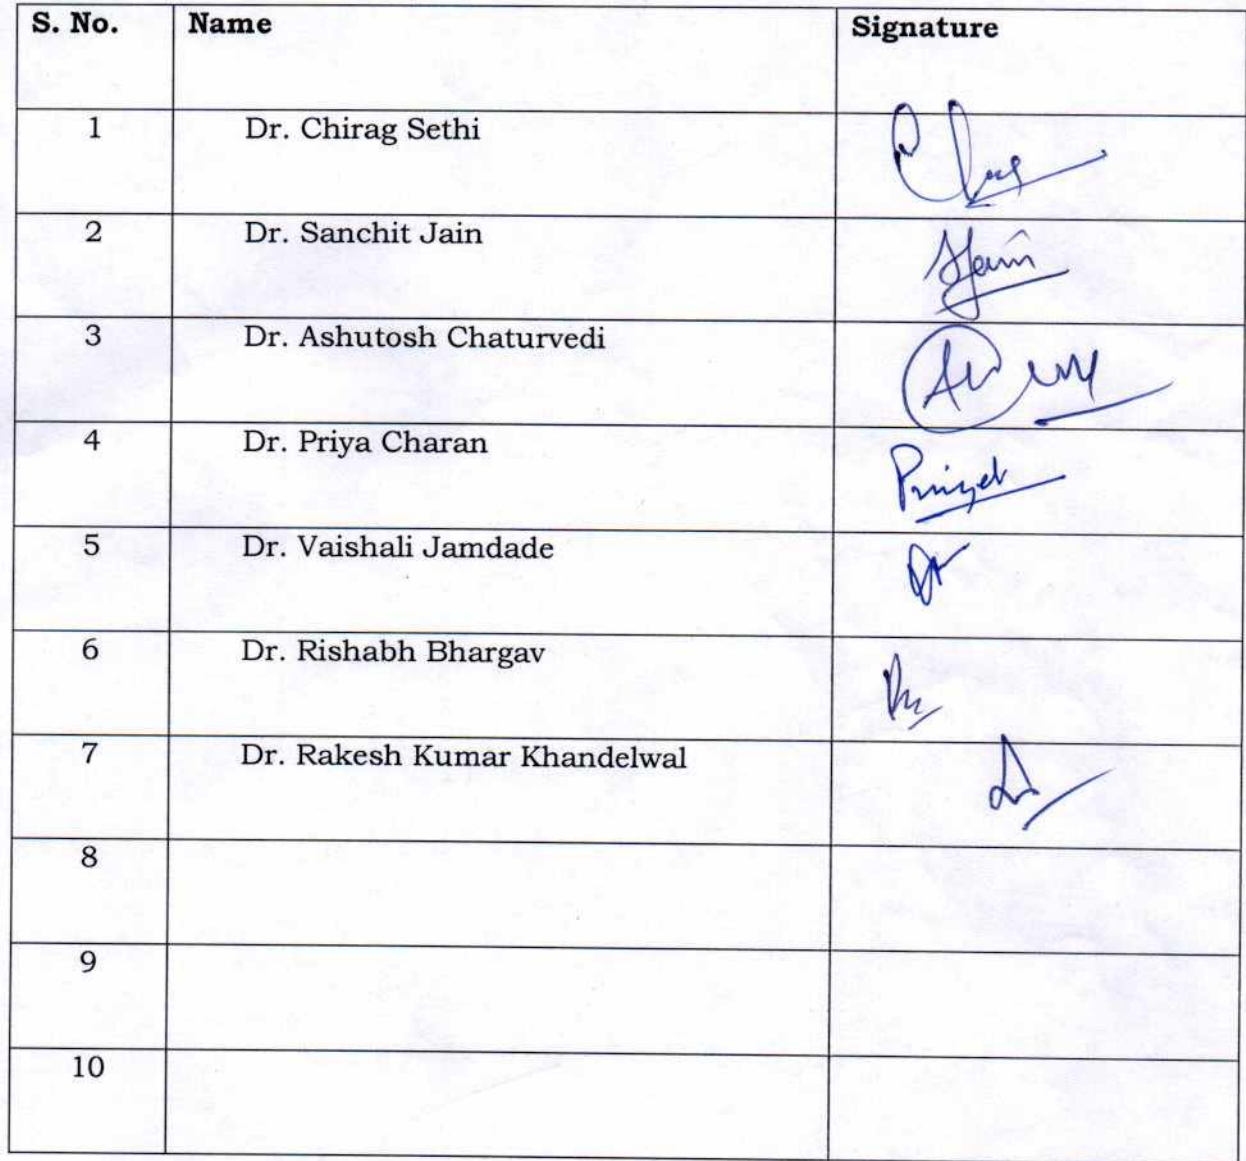 S. No. Name Signature
1 Dr. Chirag Sethi
2 Dr. Sanchit Jain
3 Dr. Ashutosh Chaturvedi
4 Dr. Priya Charan
5 Dr. Vaishali Jamdade
6 Dr. Rishabh Bhargav
7 Dr. Rakesh Kumar Khandelwal
8
9
10